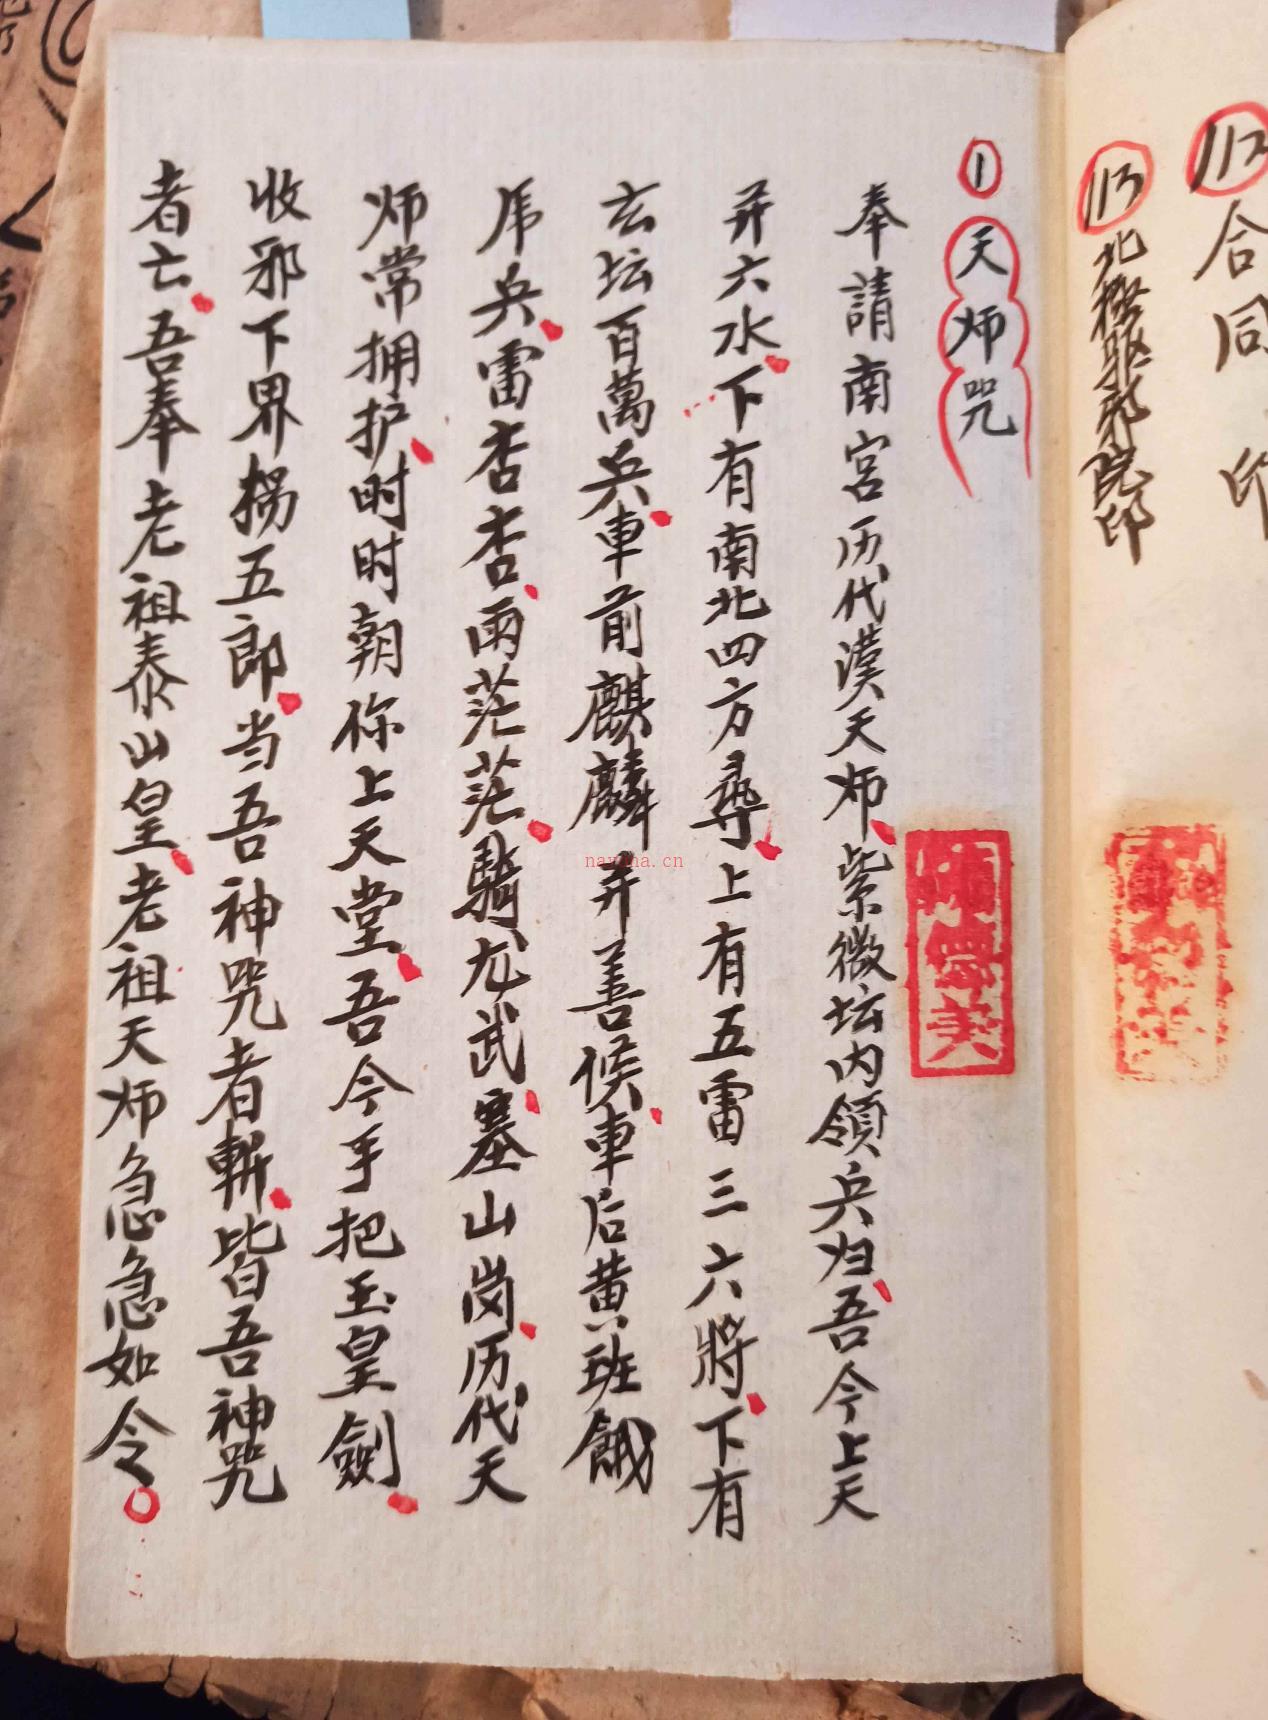 112 合同印
113 北極驱邪院印
1 天师咒
奉請南宫历代漢天师紫微坛内領兵归吾今上天
并六水下有南北四方尋上有五雷三六將下有
玄坛百萬兵車前麒麟并善候車后黄班餓
乕兵雷杳杳雨茫茫騎尤武塞山岗历代天
师常拥护时时朝你上天堂吾今手把玉皇劍
收邪下界拐五郎当吾神咒者斬皆吾神咒
者亡吾奉老祖泰山皇老祖天师急急如令
nayona.cn